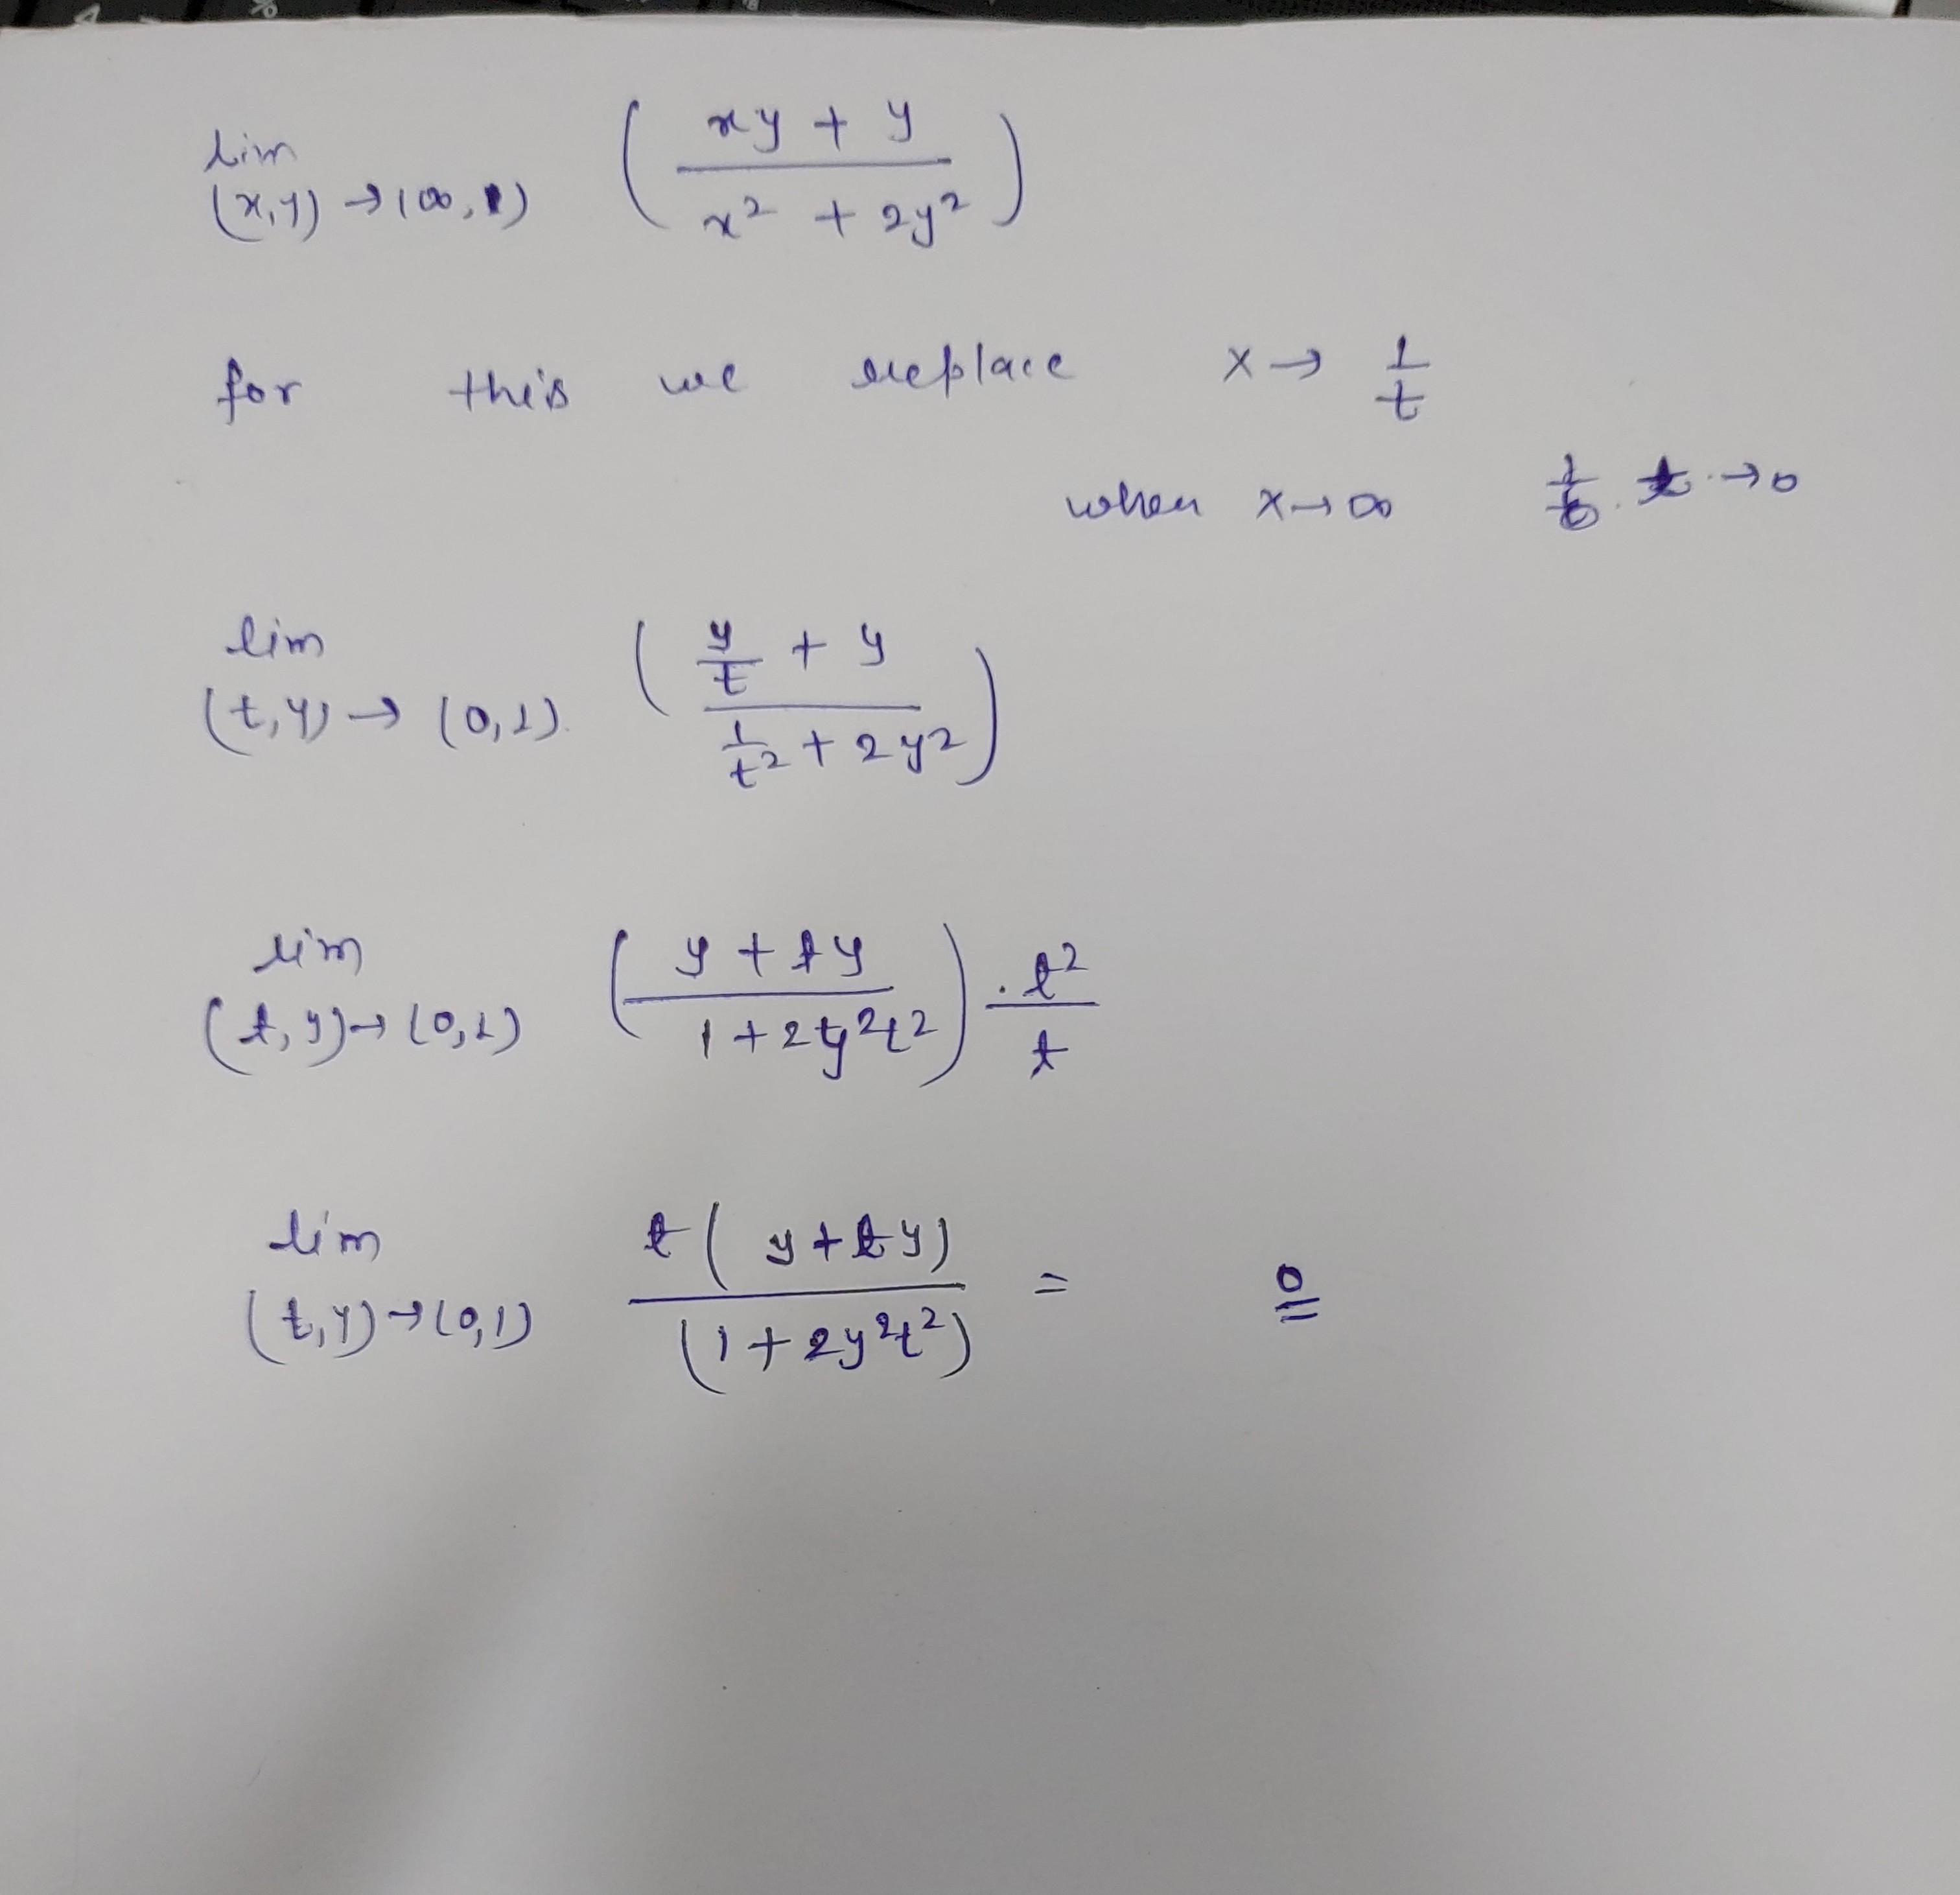 lim (x,y) → (∞,1) ( (xy + y) / (x² + 2y²) )
for this we replace x → 1/t
when x → ∞ t → 0
lim (t,y) → (0,1) ( (y/t + y) / (1/t² + 2y²) )
lim (t,y) → (0,1) ( (y + ty) / (1 + 2y²t²) ) . t² / t
lim (t,y) → (0,1) t(y + ty) / (1 + 2y²t²) = 0